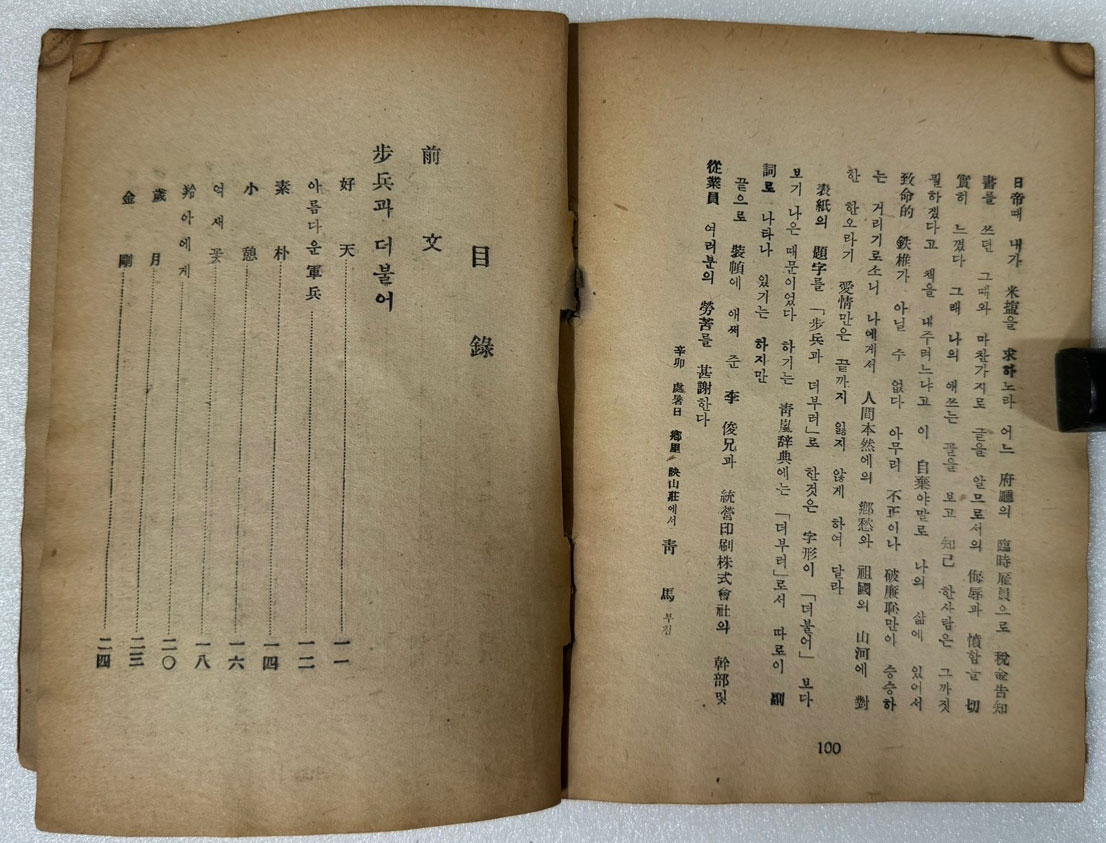 日帝때 내가 米塩을 求하노라 어느 府廳의 臨時雇員으로 稅金告知
書를 쓰던 그때와 마찬가지로 글을 앎므로서의 侮辱과 憤함을 切
實히 느꼈다 그래 나의 애쓰는 꼴을 보고 知己 한사람은 그까짓
뭘하겠다고 책을 내주려느냐고 이 自棄야말로 나의 삶에 있어서
致命的 鉄椎가 아닐 수 없다 아무리 不正이나 破廉恥만이 승승하
는 거리기로소니 나에게서 人間本然에의 鄕愁와 祖國의 山河에 對
한 한오라기 愛情만은 끝까지 잃지 않게 하여 달라
表紙의 題字를 「步兵과 더부러」로 한것은 字形이 「더불어」 보다
보기 나은 때문이었다 하기는 辞典에는 「더부러」로서 따로이 副
詞로 나타나 있기는 하지만
끝으로 裝幀에 애써 준 李 俊兄과 統營印刷株式會社의 幹部및
從業員 여러분의 勞苦를 甚謝한다
辛卯 處暑日 鄕里 映山莊에서 靑 馬 부침
100
目 錄
前 文
步兵과 더불어
好 天 一一
아름다운 軍兵 一二
素 朴 一四
小 憩 一六
억새꽃 一八
羚아에게 二〇
歲 月 二三
金 剛 二四